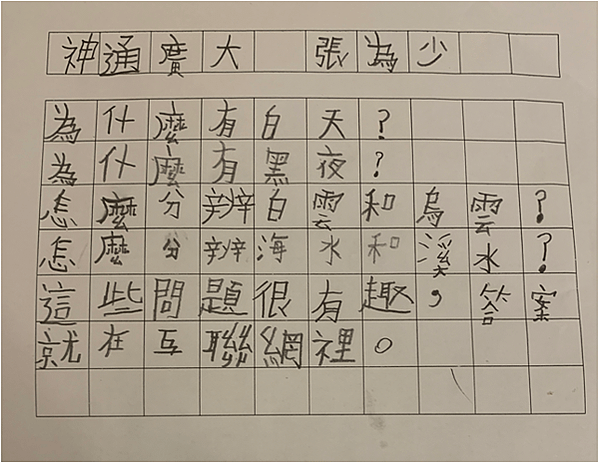 神通廣大 張為少
為什麼有白天?
為什麼有黑夜?
怎麼分辨白雲和烏雲?
怎麼分辨海水和溪水?
這些問題很有趣,答案
就在互聯網裡。